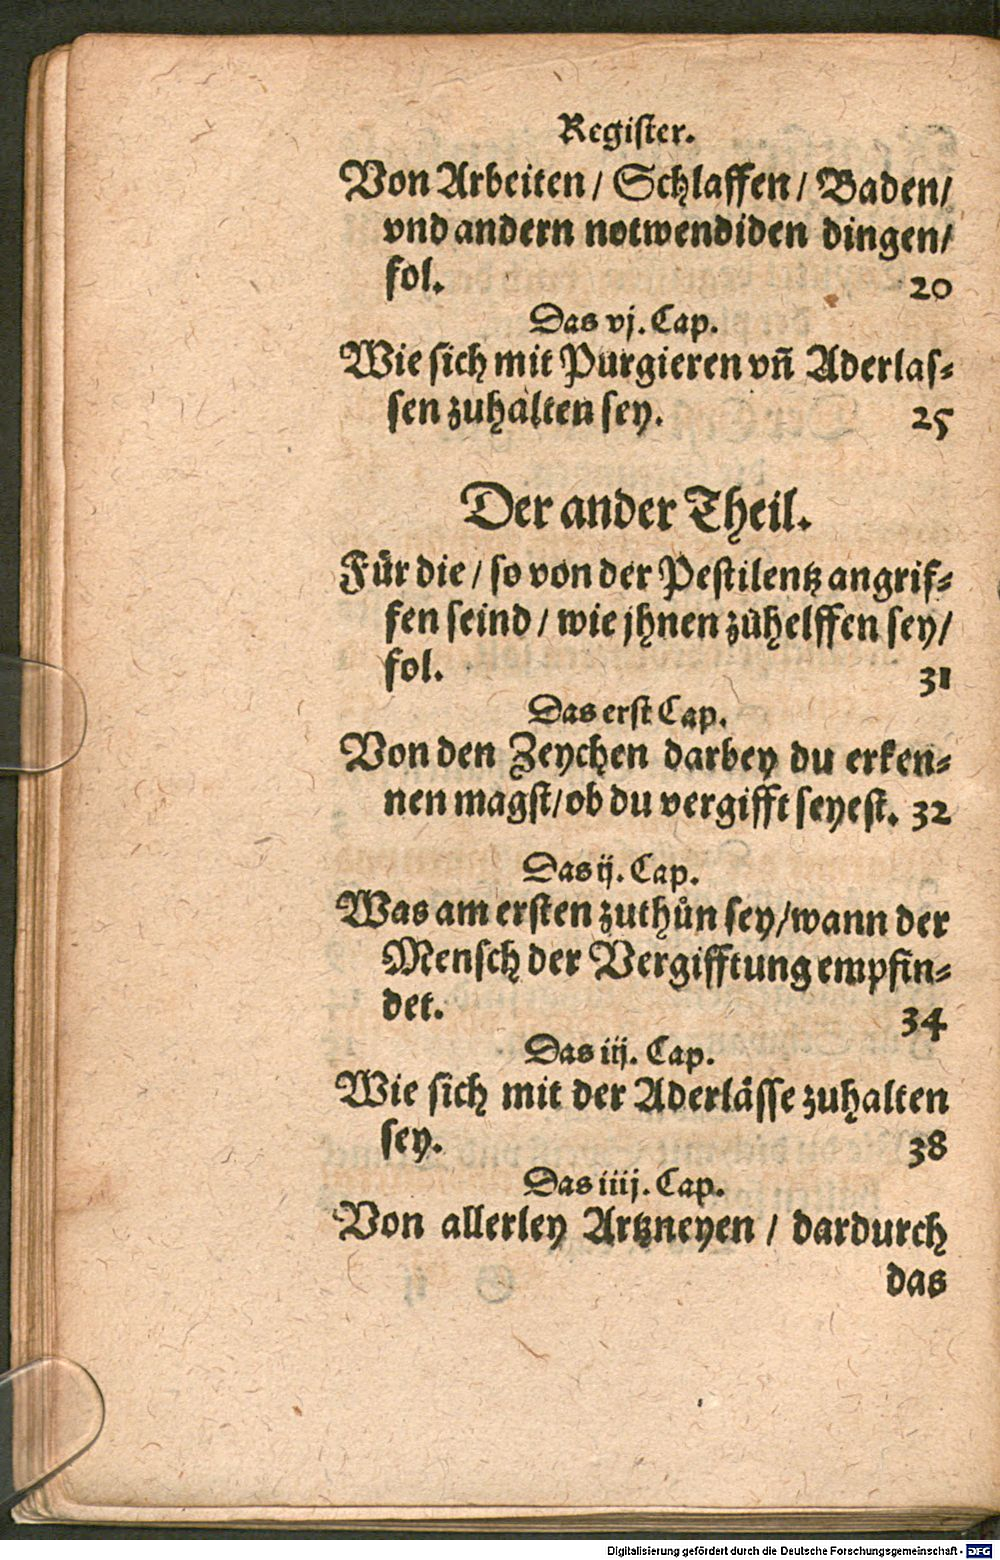 Regiſter.
Von Arbeiten / Schlaffen / Baden /
vnd andern notwendiden dingen /
fol. 20
Das vj. Cap.
Wie ſich mit Purgieren vñ Aderlaſ⸗
ſen zuhalten ſey. 25
Der ander Theil.
Fuͤr die / ſo von der Peſtilentz angrif⸗
fen ſeind / wie jhnen zuͦhelffen ſey /
fol. 31
Das erſt Cap.
Von den Zeychen darbey du erken⸗
nen magſt / ob du vergifft ſeyeſt. 32
Das ij. Cap.
Was am erſten zuthuͦn ſey / wann der
Menſch der Vergifftung empfin⸗
det. 34
Das iij. Cap.
Wie ſich mit der Aderlaͤſſe zuhalten
ſey. 38
Das iiij. Cap.
Von allerley Artzneyen / dardurch
das
Digitalisierung gefördert durch die Deutsche Forschungsgemeinschaft - DFG